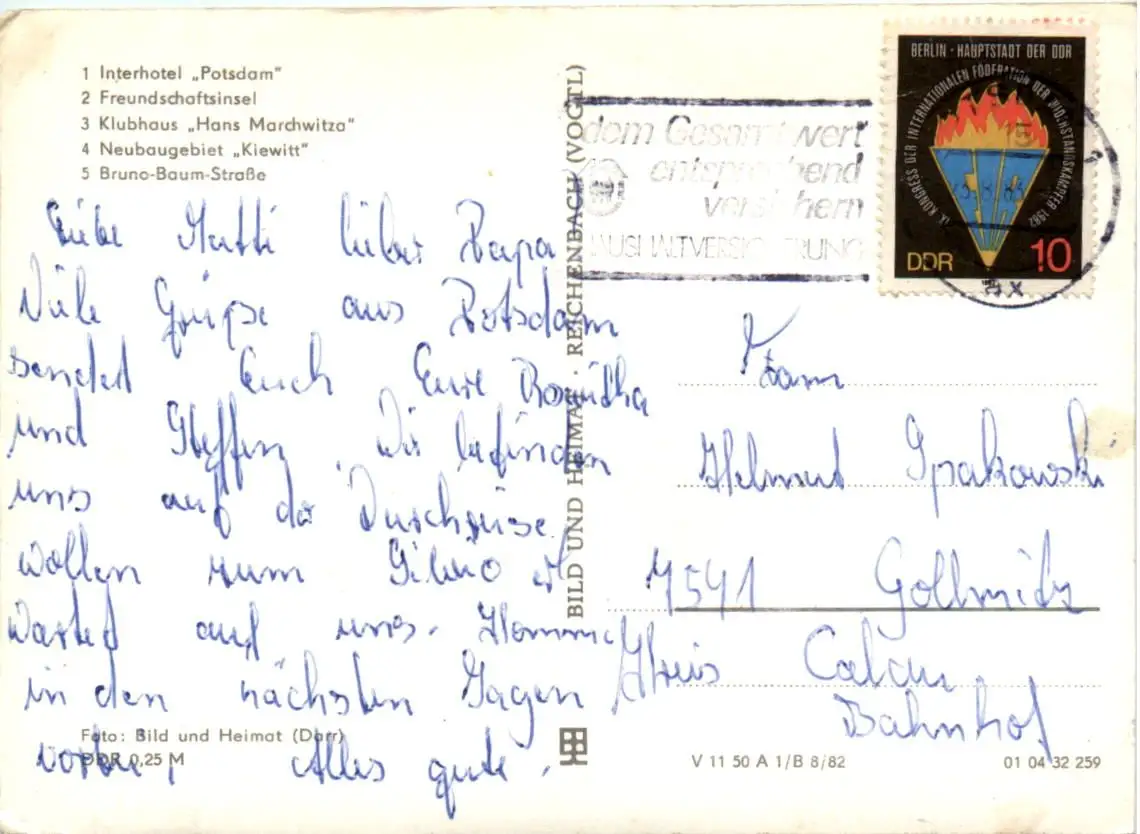 1 Interhotel „Potsdam"
2 Freundschaftsinsel
3 Klubhaus „Hans Marchwitza"
4 Neubaugebiet „Kiewitt"
5 Bruno-Baum-Straße
Liebe Mutti lieber Papa
Viele Grüße aus Potsdam
sendet Euch Eure
und Steffen. Wir befinden
uns auf der Durchreise.
Wollen zum Silvio er
Wartet auf uns. Komme
in den nächsten Tagen
vorbei. Alles gute.
Foto: Bild und Heimat (Darr)
DDR 0,25 M
BILD UND HEIMAT · REICHENBACH (VOGTL)
dem Gesamtwert
entsprechend
versichern
HAUSHALTVERSICHERUNG
BERLIN · HAUPTSTADT DER DDR
IX. KONGRESS DER INTERNATIONALEN FÖDERATION DER WIDERSTANDSKÄMPFER 1982
DDR 10
Fam
Helmut Spakowski
7541 Gollmitz
Kreis Calau
Bahnhof
V 11 50 A 1/B 8/82
01 04 32 259